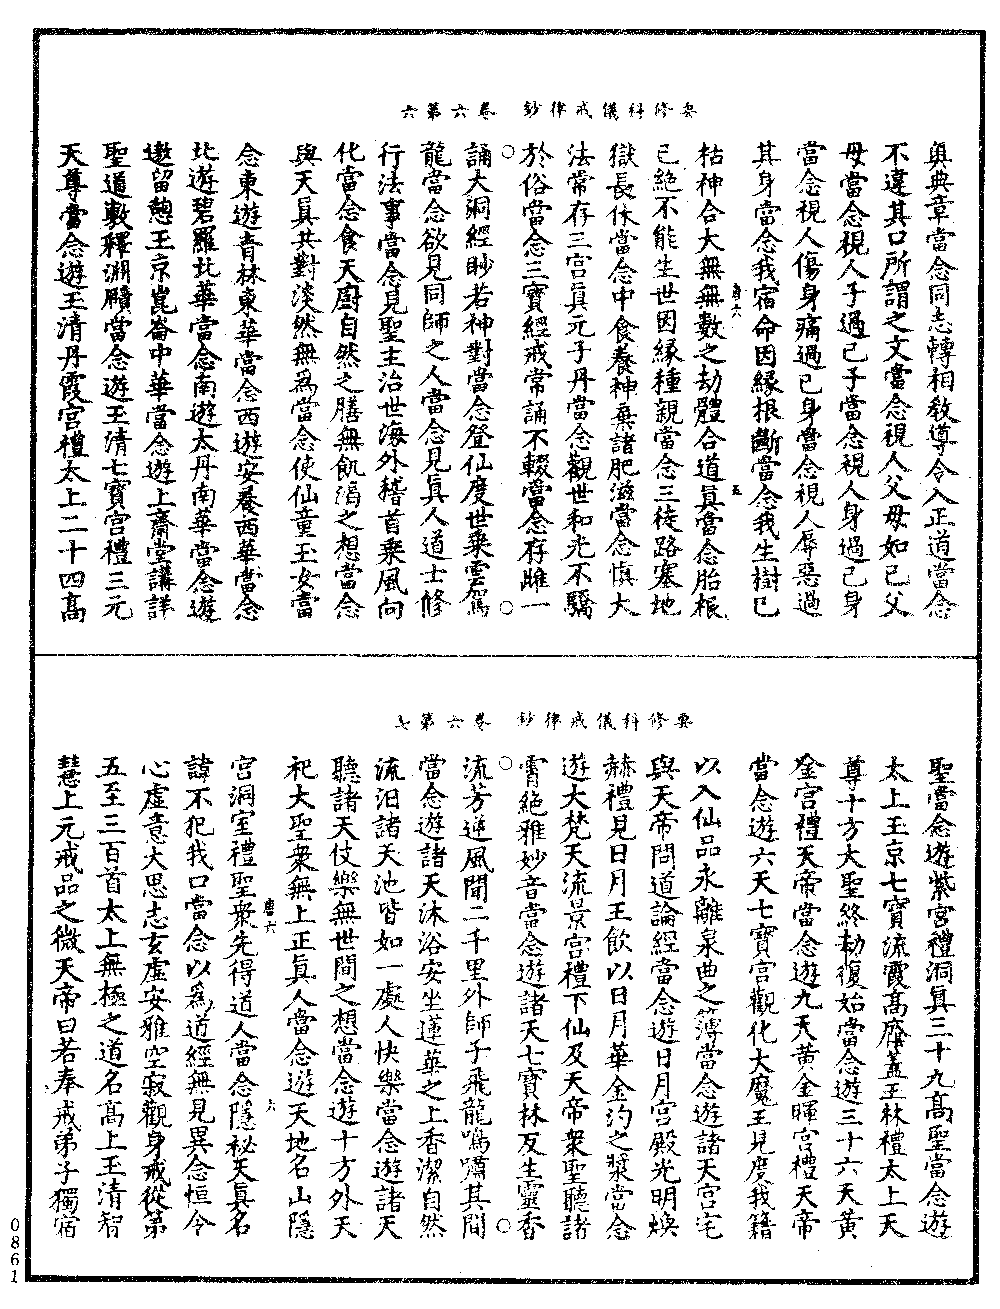 要修科儀戒律鈔　卷六第六
奧典章當念同志轉相教導令入正道當念
不違其口所謂之文當念視人父母如己父
母當念視人子過己子當念視人身過己身
當念視人傷身痛過己身當念視人辱惡過
其身當念我宿命因緣根斷當念我生樹已
枯神合大無無數之劫體合道真當念胎根
已絕不能生世因緣種親當念三徒路塞地
獄長休當念中食養神棄諸肥滋當念慎大
法常存三宮真元子丹當念觀世和光不驕
於俗當念三寶經戒常誦不輟當念存雌一
誦大洞經眇若神對當念登仙度世乘雲駕
龍當念欲見同師之人當念見真人道士修
行法事當念見聖主治世海外稽首乘風向
化當念食天廚自然之膳無飢渴之想當念
與天真共對淡然無為當念使仙童玉女當
念東遊青林東華當念西遊安養西華當念
北遊碧羅北華當念南遊太丹南華當念遊
遨留憩玉京崑崙中華當念遊上齋堂講詳
聖道敷釋淵賾當念遊玉清七寶宮禮三元
天尊當念遊玉清丹霞宮禮太上二十四高
唐六
五
要修科儀戒律鈔　卷六第七
聖當念遊紫宮禮洞真三十九高聖當念遊
太上玉京七寶流霞高臺蓋玉林禮太上天
尊十方大聖終劫復始當念遊三十六天黃
金宮禮天帝當念遊九天黃金暉宮禮天帝
當念遊六天七寶宮觀化大魔王見度我籍
以入仙品永離泉曲之簿當念遊諸天宮宅
與天帝問道論經當念遊日月宮殿光明煥
赫禮見日月王飲以日月華金沟之漿當念
遊大梵天流景宮禮下仙及天帝眾聖聽諸
霄絕雅妙音當念遊諸天七寶林反生靈香
流芳逆風聞二千里外師子飛龍鳴嘯其間
當念遊諸天沐浴安坐蓮華之上香潔自然
流汨諸天池皆如一處人快樂當念遊諸天
聽諸天伎樂無世間之想當念遊十方外天
祀大聖眾無上正真人當念遊天地名山隱
宮洞室禮聖眾先得道人當念隱祕天真名
諱不犯我口當念以為道經無見異念恒令
心虛意大思志玄虛安雅空寂觀身戒從第
五至三百首太上無極之道名高上玉清智
慧上元戒品之微天帝曰若奉戒弟子獨宿
唐六
六
0861